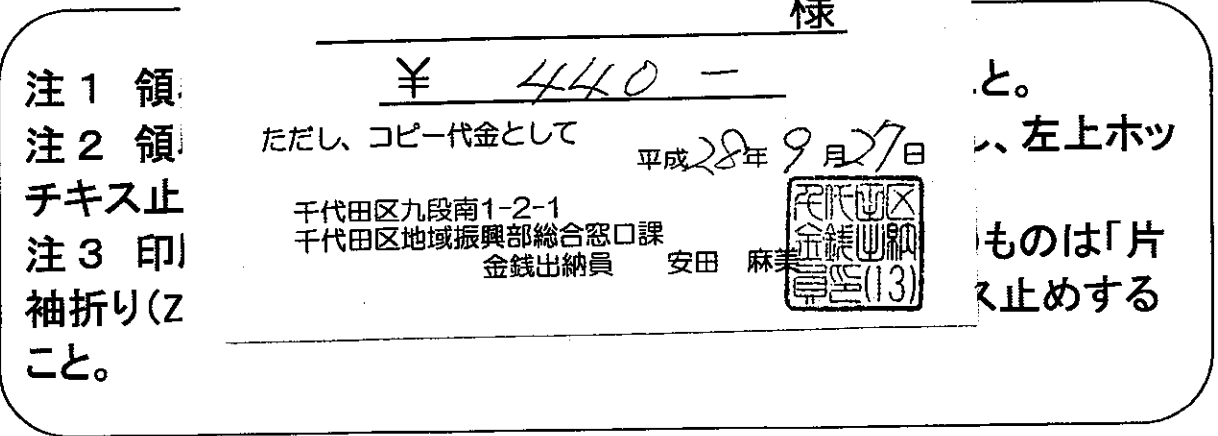 様
¥ 440 -
ただし、コピー代金として
平成28年9月27日
千代田区九段南1-2-1
千代田区地域振興部総合窓口課
金銭出納員 安田 麻美
千代田区
金銭出納
員印(13)
注1 領 と。
注2 領 し、左上ホッ
チキス止
注3 印 ものは「片
袖折り(Z ス止めする
こと。